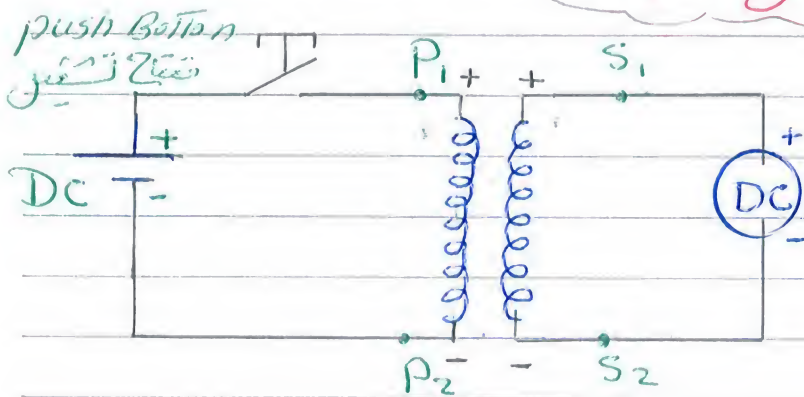 push Botton
مفتاح تشغيل
P1 + + S1
+ +
DC DC
- -
P2 - - S2